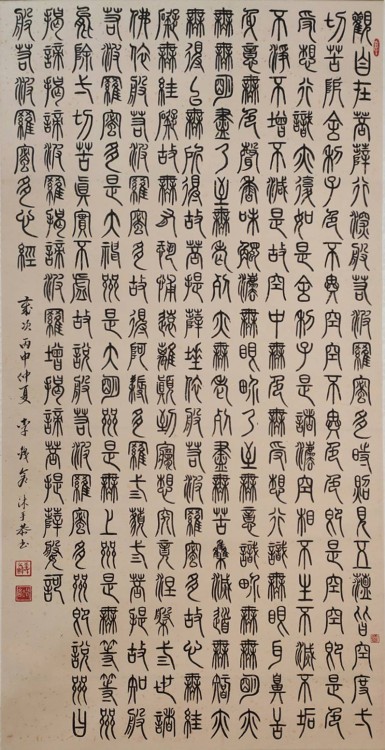 觀自在菩薩行深般若波羅蜜多時照見五蘊皆空度一
切苦厄舍利子色不異空空不異色色即是空空即是色
受想行識亦復如是舍利子是諸法空相不生不滅不垢
不淨不增不減是故空中無色無受想行識無眼耳鼻舌
身意無色聲香味觸法無眼界乃至無意識界無無明亦
無無明盡乃至無老死亦無老死盡無苦集滅道無智亦
無得以無所得故菩提薩埵依般若波羅蜜多故心無罣
礙無罣礙故無有恐怖遠離顛倒夢想究竟涅槃三世諸
佛依般若波羅蜜多故得阿耨多羅三藐三菩提故知般
若波羅蜜多是大神咒是大明咒是無上咒是無等等咒
能除一切苦真實不虛故說般若波羅蜜多咒即說咒曰
揭諦揭諦波羅揭諦波羅僧揭諦菩提薩婆訶
般若波羅蜜多心經
歲次丙申仲夏李沐手恭书